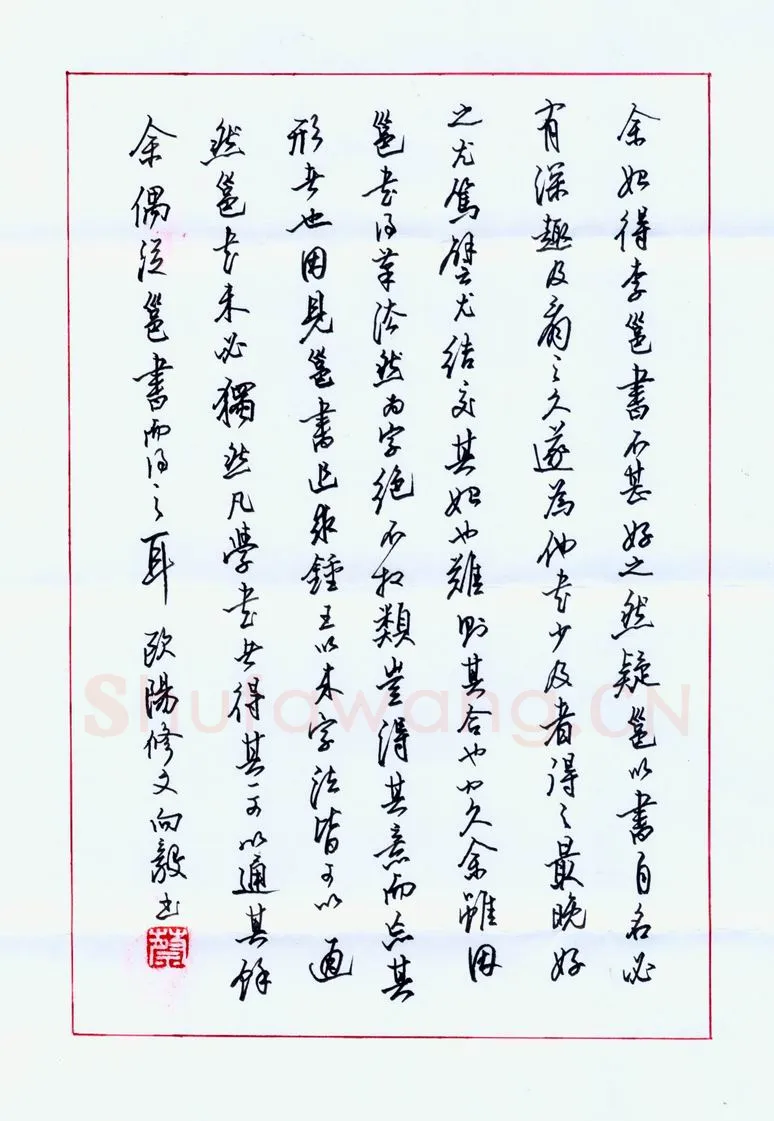 余始得李邕書不甚好之然疑邕以書自名必
有深趣及看之久遂為他书少及者得之最晚好
之尤篤譬尤結交其始也難則其合也必久余雖因
邕书得筆法然为字绝不相類豈得其意而忘其
形者也因見邕書追求鍾王以来字法皆可以通
然邕书未必獨然凡學书者得其一可以通其餘
余偶從邕書而得之耳 欧陽修文向毅书
Shufawang.CN